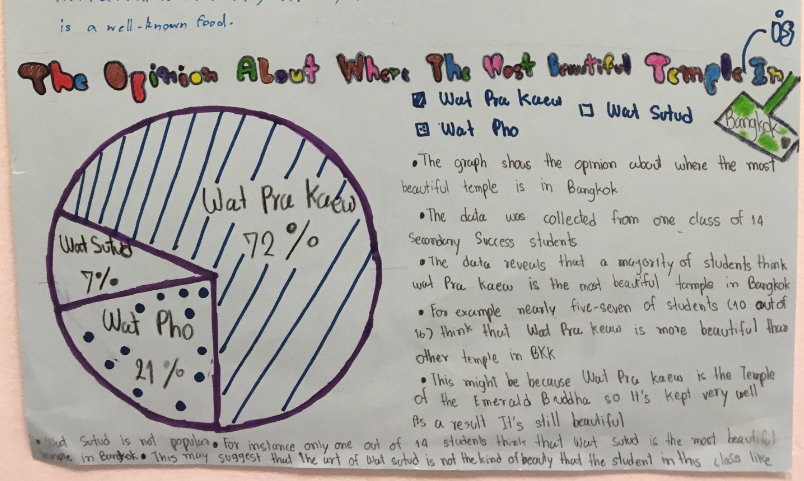 is a well-known food.
is
The Opinion About Where The Most Beautiful Temple In
Bangkok
Wat Pra Kaew
Wat Sutud
Wat Pho
Wat Pra Kaew
72%
Wat Sutud
7%
Wat Pho
21%
• The graph shows the opinion about where the most
beautiful temple is in Bangkok
• The data was collected from one class of 14
Secondary Success students
• The data reveals that a majority of students think
wat Pra Kaew is the most beautiful temple in Bangkok
• For example nearly five-seven of students (10 out of
16) think that Wat Pra Keaw is more beautiful than
other temple in BKK
• This might be because Wat Pra kaew is the Temple
of the Emerald Buddha so It's kept very well
As a result It's still beautiful
• Wat Sutud is not popular • For instance only one out of 14 students think that Wat sutud is the most beautiful
temple in Bangkok • This may suggest that The art of Wat sutud is not the kind of beauty that the student in this class like